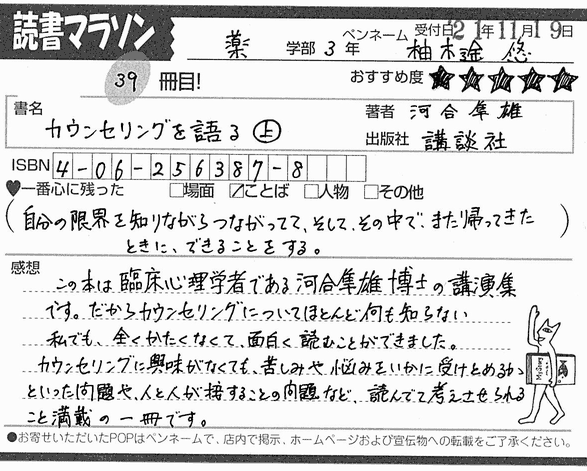 読書マラソン
薬 学部 3年 ペンネーム 柚木 悠 受付日 21年11月19日
39 冊目! おすすめ度 ★★★★★
書名 カウンセリングを語る 上
著者 河合隼雄
出版社 講談社
ISBN 4-06-256387-8
♥一番心に残った □場面 ☑ことば □人物 □その他
(自分の限界を知りながらつながってて、そして、その中で、また帰ってきた
ときに、できることをする。)
感想
この本は臨床心理学者である河合隼雄博士の講演集
です。だからカウンセリングについてほとんど何も知らない
私でも、全くかたくなくて、面白く読むことができました。
カウンセリングに興味がなくても、苦しみや悩みをいかに受けとめるか
といった問題や、人と人が接することの問題など、読んでて考えさせられる
こと満載の一冊です。
●お寄せいただいたPOPはペンネームで、店内で掲示、ホームページおよび宣伝物への転載をご了承ください。